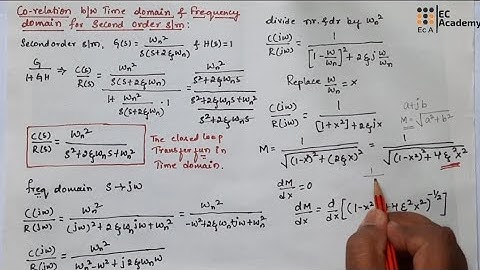 Co-relation b/w Time domain & Frequency
domain for Second Order s/m:
Second order s/m, G(s) = ωn² / s(s+2ξωn) & H(s)=1
G / 1+GH ⇒ C(s)/R(s) = [ωn² / s(s+2ξωn)] / [1 + ωn² / s(s+2ξωn) · 1] = [ωn² / s²+2ξωns] / [s²+2ξωns+ωn² / s²+2ξωns]
C(s)/R(s) = ωn² / s²+2ξωns+ωn²
The closed loop
Transfer fun in
Time domain.
freq domain s→jω
C(jω)/R(jω) = ωn² / (jω)²+2ξωnjω+ωn² = ωn² / -ω²+2ξωnjω+ωn²
C(jω)/R(jω) = ωn² / ωn²-ω²+j2ξωnω
divide nr. & dr by ωn²
C(jω)/R(jω) = 1 / [1-ω/ωn]²+2ξjω/ωn
Replace ω/ωn = x
C(jω)/R(jω) = 1 / [1+x²]+2ξjx
a+jb
M = √a²+b²
M = 1 / √(1-x²)²+(2ξx)² = 1 / √(1-x²)²+4ξ²x²
dM/dx = 0
1
dM/dx = d/dx [((1-x²)²+4ξ²x²)^-1/2]
EC
Academy
EcA